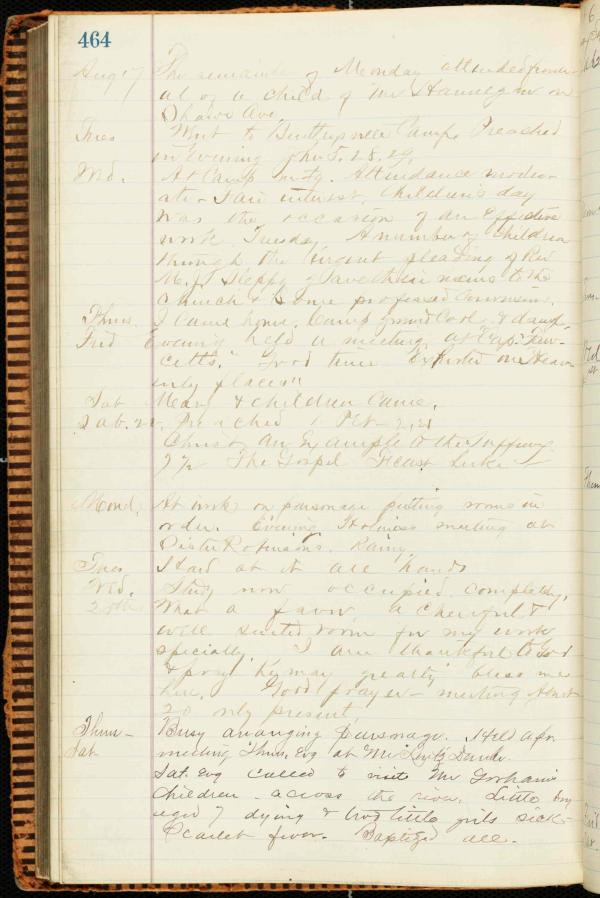 464
Aug 17 The remainder of Monday attended funer-
al of a child of Mr Hannegan on
Shaws Ave.
Tues Went to Camp. Preached
in Evening John 5. 28, 29,
Wed. At Camp Mtg. Attendance moder-
ate - Fair interest. Children's day
was the occasion of an Effective
work Tuesday. A number of children
through the urgent pleading of Rev
M. gave their names to the
Church & Some professed Conversion.
Thurs. I came home. Camp ground Cool & damp,
Frid Evening held a meeting at Cap.
Good time Exhorted on "Heav-
enly places"
Sat Mary & children Came.
Sab. 22, Preached 1 Pet - 2, 21
Christ an Example to the Suffering.
7 1/2 The Gospel Feast Luke
Mond. At work on parsonage putting rooms in
order. Evening Holiness meeting at
Sister Robinsons. Rainy.
Tues Staid at it all hands
Wed. Study now occupied completely,
25th What a favor, a cheerful &
well suited room for my work
specially. I am thankful to God
& pray He may greatly bless me
here. Good prayer-meeting About
20 only present,
Thurs - Busy arranging parsonage. Held a pr
Sat meeting Thurs. Evg at Mr
Sat. Evg called to visit Mr Gorhams
children - across the river. Little boy
aged 7 dying & two little girls sick -
Scarlet fever. Baptized all.